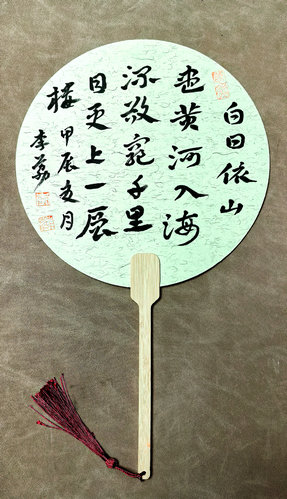 白日依山
盡黄河入海
流欲窮千里
目更上一層
樓
甲辰夏月
李